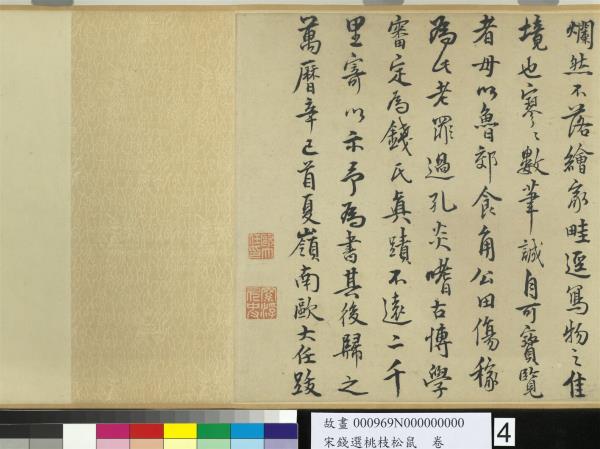 爛然不落繪家畦逕寫物之佳
境也寥〻數筆誠自可寶覽
者毋以魯郊食角公田傷稼
為此老罪過孔炎嗜古博學
審定為錢氏真蹟不遠二千
里寄以示予為書其後歸之
萬曆辛巳首夏嶺南歐大任跋
故畫 000969N000000000
宋錢選桃枝松鼠 卷
4